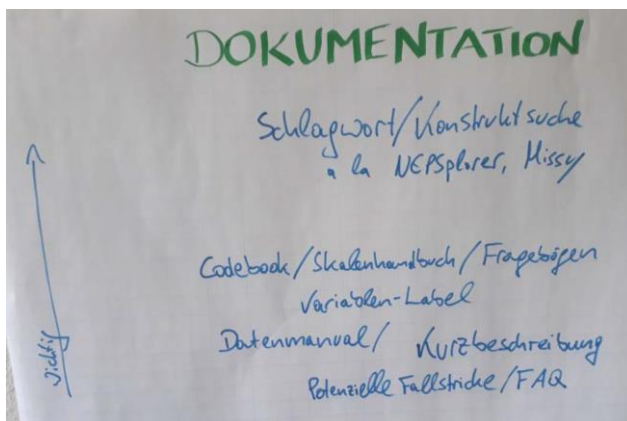 DOKUMENTATION
Schlagwort/Konstruktsuche
a la NEPSplorer, Missy
Codebook/Skalenhandbuch/Fragebögen
Variablen-Label
Datenmanual/ Kurzbeschreibung
Potenzielle Fallstricke/FAQ
wichtig